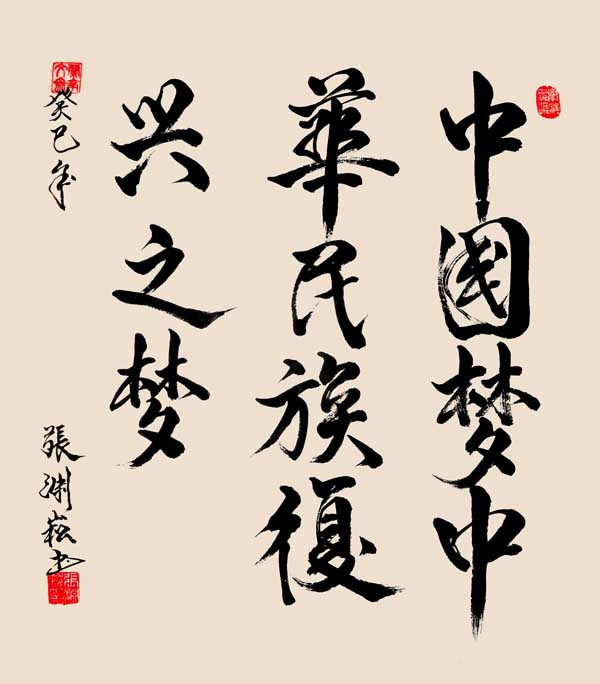 中国梦中
華民族復
兴之梦
癸巳年
張渊菘书